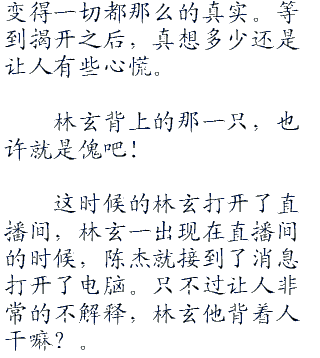 变得一切都那么的真实。等
到揭开之后，真想多少还是
让人有些心慌。
林玄背上的那一只，也
许就是傀吧！
这时候的林玄打开了直
播间，林玄一出现在直播间
的时候，陈杰就接到了消息
打开了电脑。只不过让人非
常的不解释，林玄他背着人
干嘛？。